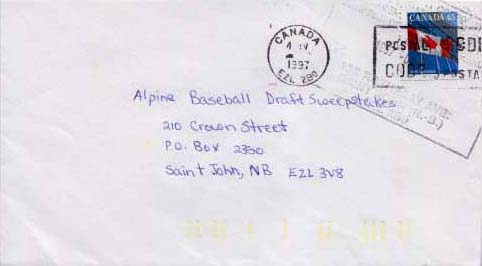 CANADA 45
CANADA
1997
POSTAL CODE
CODE POSTAL
Alpine Baseball Draft Sweepstakes
210 Crown Street
P.O. Box 2350
Saint John, NB E2L 3V8